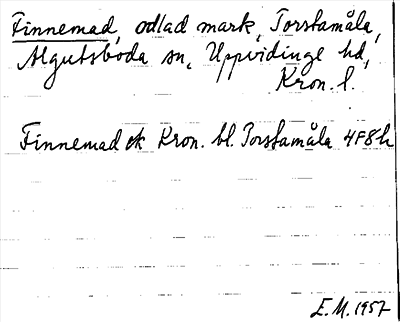 Finnemad, odlad mark, Torstamåla,
Algutsboda sn, Uppvidinge hd,
Kron. l.
Finnemad ek Kron. bl. Torstamåla 4F8h
E.M. 1957